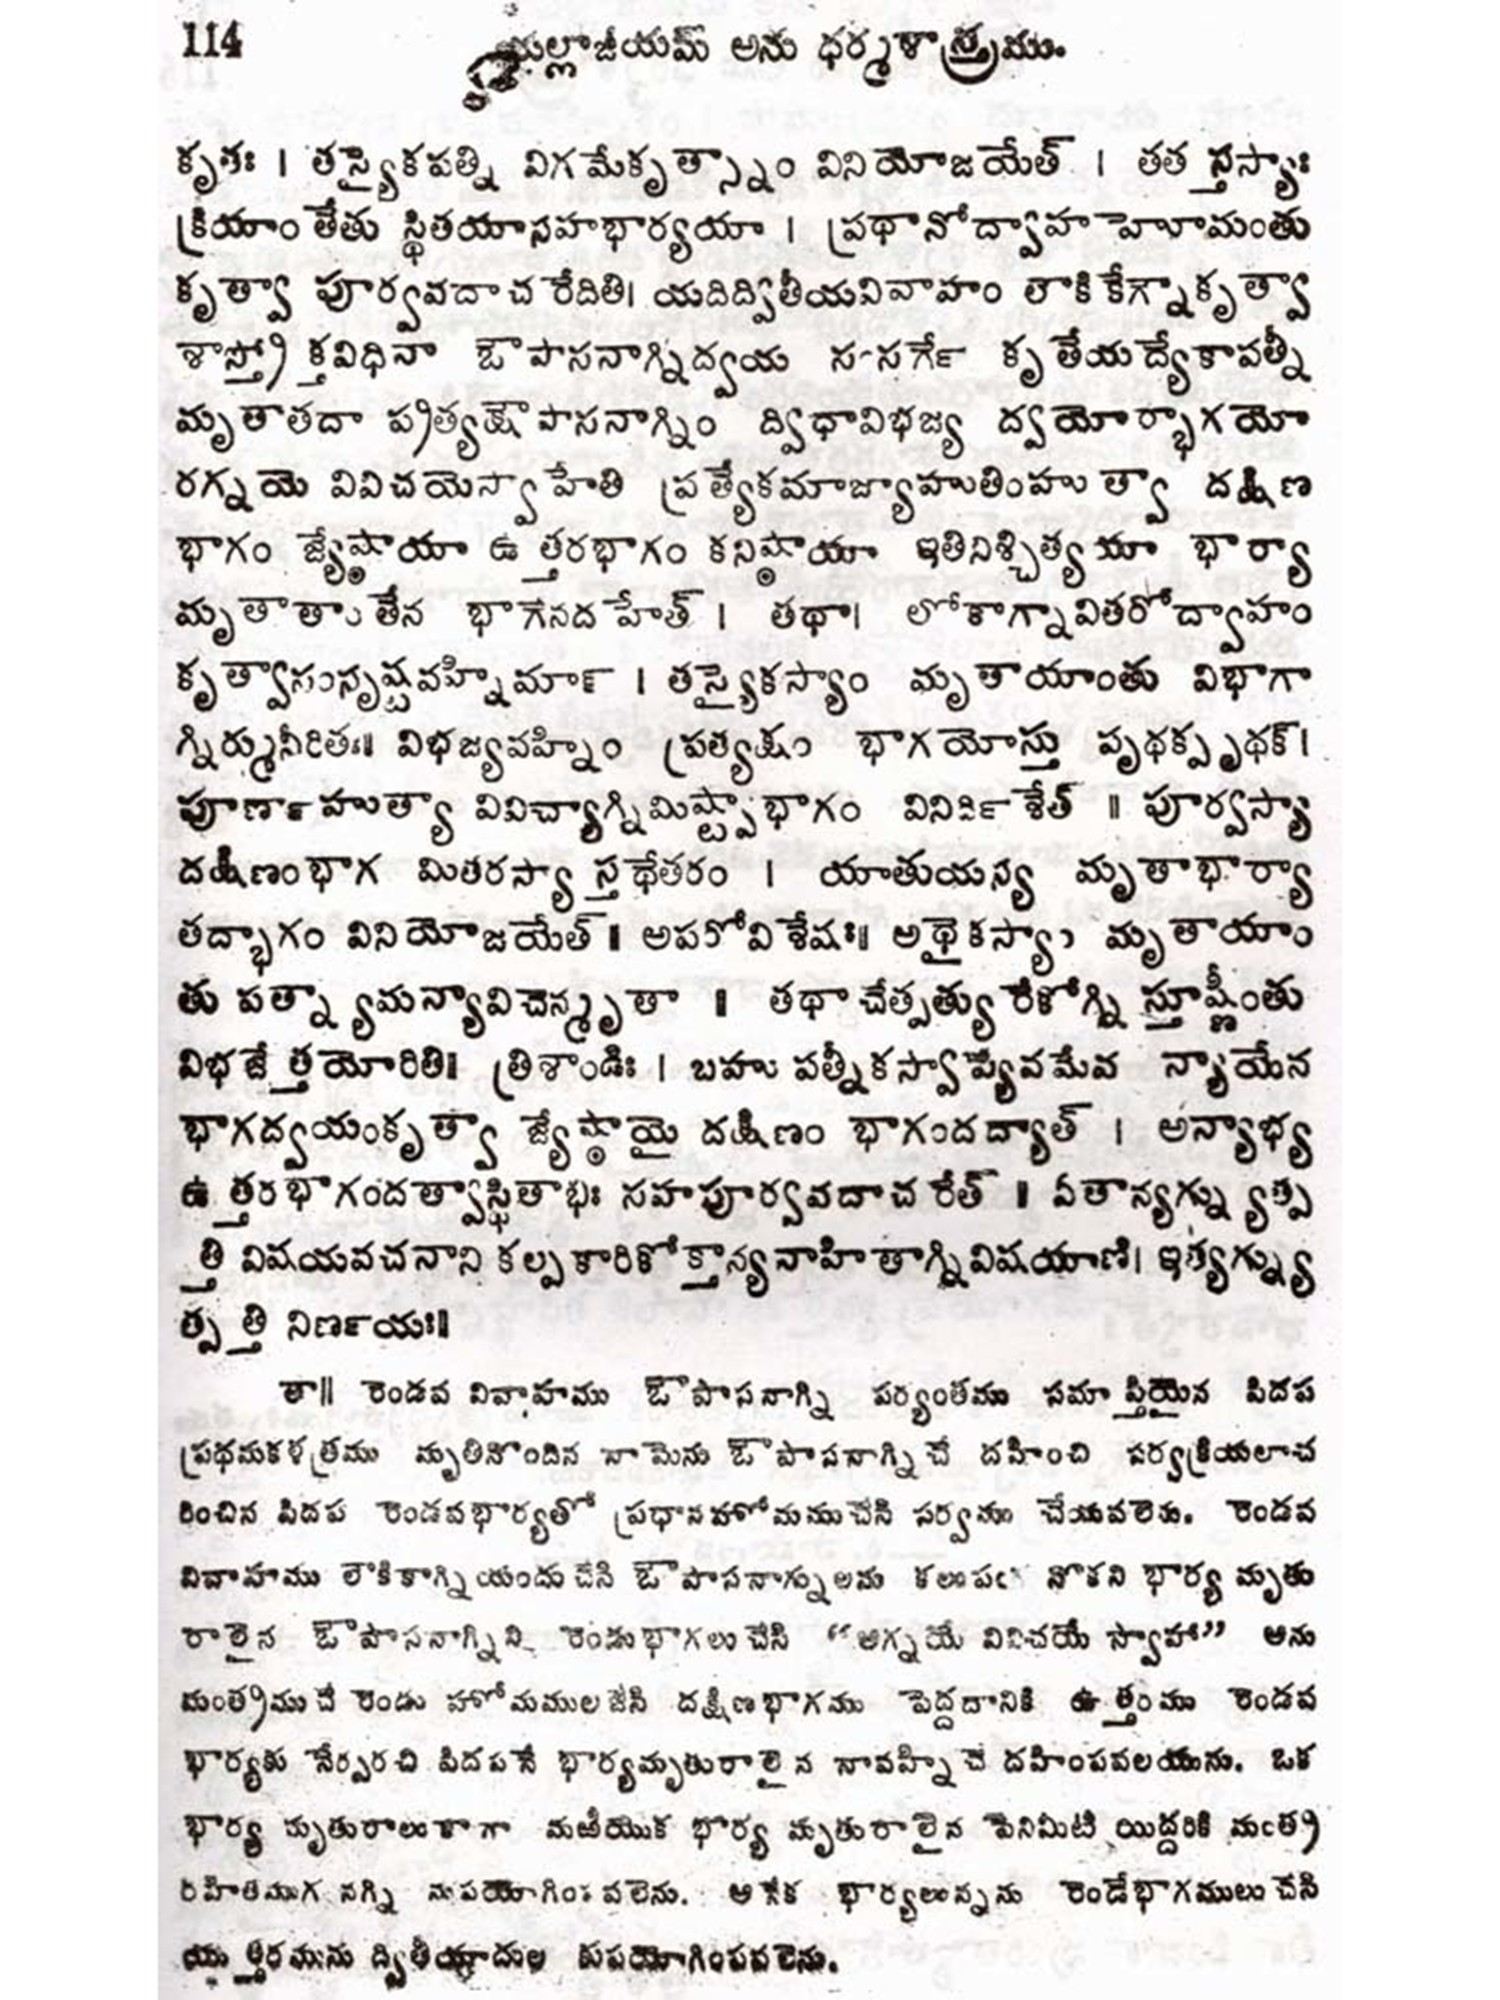 114 యల్లాజీయమ్ అను ధర్మశాస్త్రము.
కృతః । తస్యైకపత్ని విగమేకృత్స్నాం వినియోజయేత్ । తత స్తస్యాః
క్రియాం తేతు స్థితయాసహభార్యయా । ప్రథానోద్వాహ హోమంతు
కృత్వా పూర్వవదాచ రేదితి। యదిద్వితీయవివాహం లౌకి కేగ్నౌకృత్వా
శాస్త్రోక్తవిధినా ఔపాసనాగ్నిద్వయ సంసర్గే కృతేయద్యేకాపత్నీ
మృతాతదా ప్రత్యక్షౌపాసనాగ్నిం ద్విధావిభజ్య ద్వయోర్భాగయో
రగ్నయె వివిచయెస్వాహేతి ప్రత్యేకమాజ్యాహుతింహు త్వా దక్షిణ
భాగం జ్యేష్ఠాయా ఉత్తరభాగం కనిష్ఠాయా ఇతినిశ్చిత్యయా భార్యా
మృతాతాం తేన భాగేనదహేత్ । తథా। లోకాగ్నావితరోద్వాహం
కృత్వాసంసృష్టవహ్నిమాన్ । తస్యైకస్యాం మృతాయాంతు విభాగా
గ్నిర్మునీరితః॥ విభజ్యవహ్నిం ప్రత్యక్షం భాగయోస్తు పృథక్పృథక్।
పూర్ణాహుత్యా వివిచ్యాగ్నిమిష్ట్వాభాగం వినిర్దిశేత్ ॥ పూర్వస్యా
దక్షిణంభాగ మితరస్యా స్తథేతరం । యాతుయస్య మృతాభార్యా
తద్భాగం వినియోజయేత్॥ అపరోవిశేషః॥ అథైకస్యాం మృతాయాం
తు పత్న్యామన్యావిచెన్మృతా ॥ తథాచేత్పత్యురేకోగ్ని స్తూష్ణీంతు
విభజేత్తయోరితి॥ త్రిశాండిః । బహు పత్నీకస్యాప్యేవమేవ న్యాయేన
భాగద్వయంకృత్వా జ్యేష్ఠాయై దక్షిణం భాగందద్యాత్ । అన్యాభ్య
ఉత్తరభాగందత్వాస్థితాభిః సహపూర్వవదాచరేత్ ॥ ఏతాన్యగ్న్యుత్ప
త్తి విషయవచనాని కల్పకారికోక్తాన్యనాహితాగ్నివిషయాణి। ఇత్యగ్న్యు
త్పత్తి నిర్ణయః॥
తా॥ రెండవ వివాహము ఔపాసనాగ్ని పర్యంతము సమాప్తియైన పిదప
ప్రథమకళత్రము మృతినొందిన నామెను ఔపాసనాగ్నిచే దహించి సర్వక్రియలాచ
రించిన పిదప రెండవభార్యతో ప్రధానహోమముచేసి సర్వము చేయవలెను. రెండవ
వివాహము లౌకికాగ్నియందుచేసి ఔపాసనాగ్నులను కలుపగ నొకని భార్య మృతు
రాలైన ఔపాసనాగ్నిని రెండుభాగలుచేసి “అగ్నయే వివిచయే స్వాహా” అను
మంత్రముచే రెండు హోమములజేసి దక్షిణభాగము పెద్దదానికి ఉత్తరము రెండవ
భార్యకు నేర్పరచి పిదపనే భార్యమృతురాలైన నావహ్నిచే దహింపవలయును. ఒక
భార్య మృతురాలుకాగా మఱియొక భార్య మృతురాలైన పెనిమిటి యిద్దరికి మంత్ర
రహితముగ నగ్ని నుపయోగింపవలెను. అనేక భార్యలున్నను రెండేభాగములుచేసి
యుత్తరమును ద్వితీయాదుల కుపయోగింపవలెను.